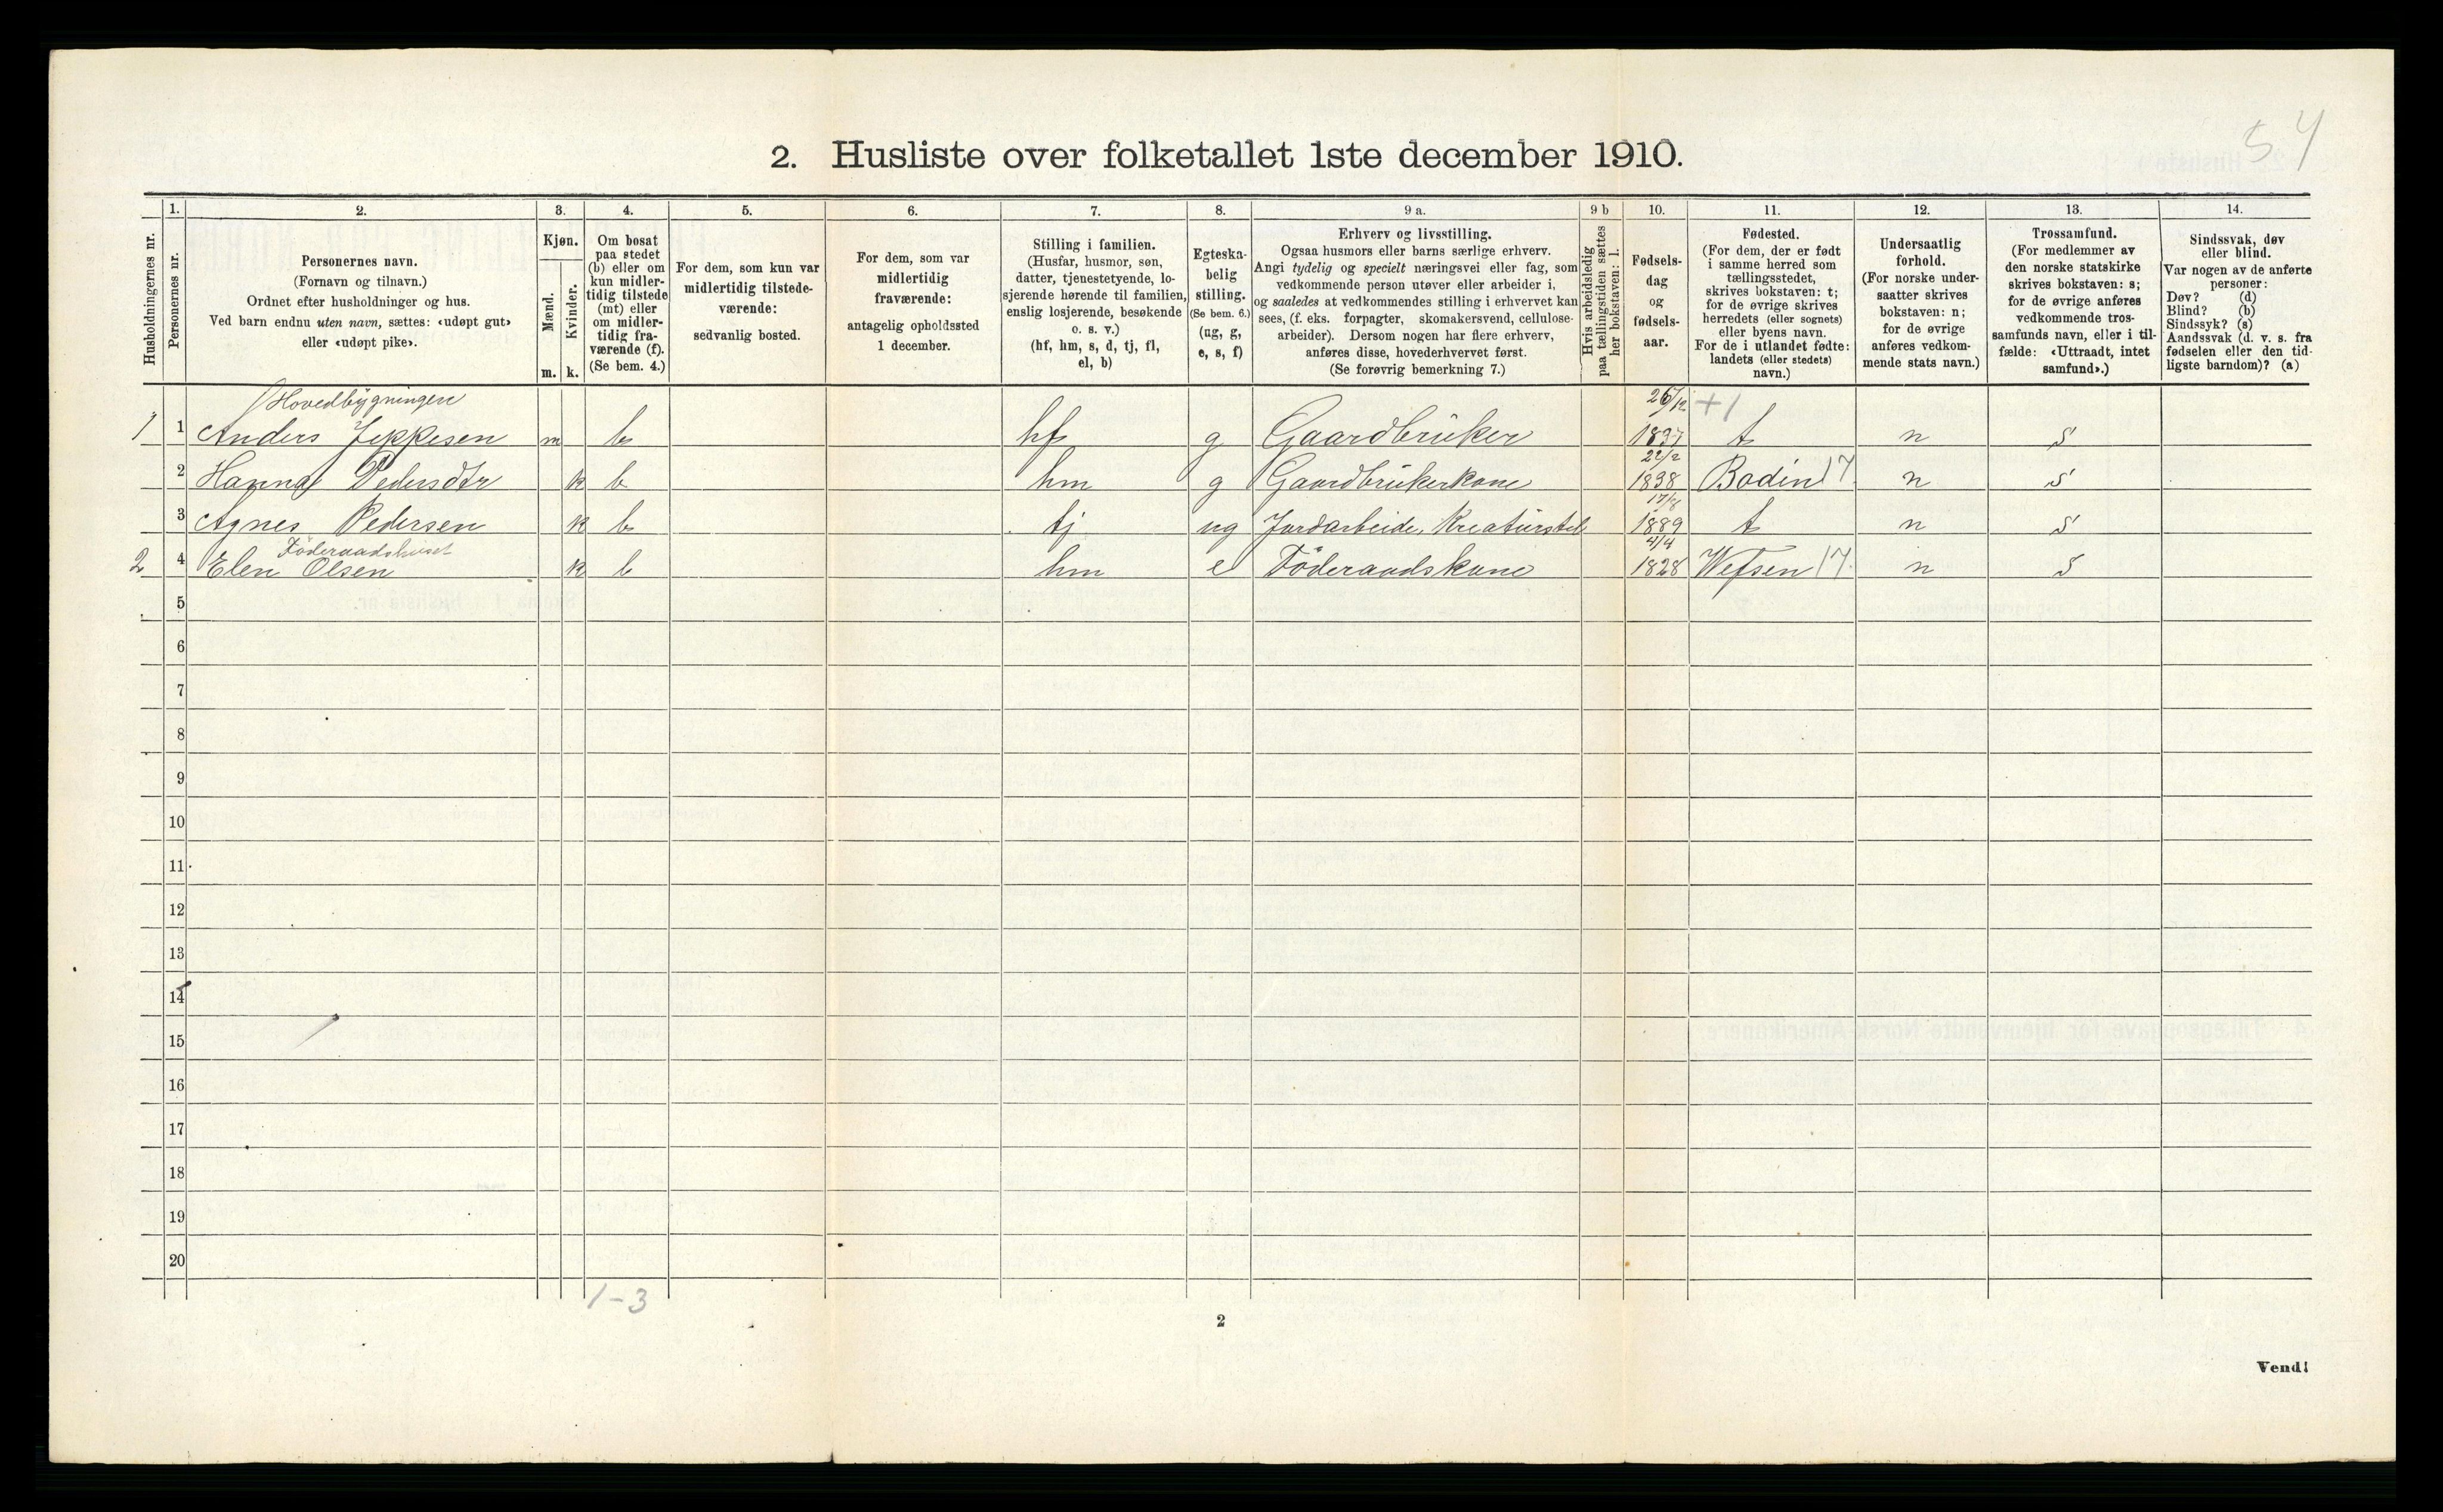 54
2. Husliste over folketallet 1ste december 1910.
Husholdningernes nr.
1.
Personernes nr.
2.
Personernes navn.
(Fornavn og tilnavn.)
Ordnet efter husholdninger og hus.
Ved barn endnu uten navn, sættes: «udøpt gut»
eller «udøpt pike».
3.
Kjøn.
Mænd.
Kvinder.
m. k.
4.
Om bosat
paa stedet
(b) eller om
kun midler-
tidig tilstede
(mt) eller
om midler-
tidig fra-
værende (f).
(Se bem. 4.)
5.
For dem, som kun var
midlertidig tilstede-
værende:
sedvanlig bosted.
6.
For dem, som var
midlertidig
fraværende:
antagelig opholdssted
1 december.
7.
Stilling i familien.
(Husfar, husmor, søn,
datter, tjenestetyende, lo-
sjerende hørende til familien,
enslig losjerende, besøkende
o. s. v.)
(hf, hm, s, d, tj, fl,
el, b)
8.
Egteska-
belig
stilling.
(Se bem. 6.)
(ug, g,
e, s, f)
9 a.
Erhverv og livsstilling.
Ogsaa husmors eller barns særlige erhverv.
Angi tydelig og specielt næringsvei eller fag, som
vedkommende person utøver eller arbeider i,
og saaledes at vedkommendes stilling i erhvervet kan
sees, (f. eks. forpagter, skomakersvend, cellulose-
arbeider). Dersom nogen har flere erhverv,
anføres disse, hovederhvervet først.
(Se forøvrig bemerkning 7.)
9 b
Hvis arbeidsledig
paa tællingstiden sættes
her bokstaven: l.
10.
Fødsels-
dag
og
fødsels-
aar.
11.
Fødested.
(For dem, der er født
i samme herred som
tællingsstedet,
skrives bokstaven: t;
for de øvrige skrives
herredets (eller sognets)
eller byens navn.
For de i utlandet fødte:
landets (eller stedets)
navn.)
12.
Undersaatlig
forhold.
(For norske under-
saatter skrives
bokstaven: n;
for de øvrige
anføres vedkom-
mende stats navn.)
13.
Trossamfund.
(For medlemmer av
den norske statskirke
skrives bokstaven: s;
for de øvrige anføres
vedkommende tros-
samfunds navn, eller i til-
fælde: «Uttraadt, intet
samfund».)
14.
Sindssvak, døv
eller blind.
Var nogen av de anførte
personer:
Døv? (d)
Blind? (b)
Sindssyk? (s)
Aandssvak (d. v. s. fra
fødselen eller den tid-
ligste barndom)? (a)
Hovedbygningen 26/12 +1
1 1 Anders Jeppesen m b hf g Gaardbruker 1837 t n s
22/2
2 Hanna Pedersdtr k b hm g Gaardbrukerkone 1838 Bodin 17 n s
17/8
3 Agnes Pedersen k b tj ug Jordarbeide, Kreaturstel 1889 t n s
Föderaadshuset 4/4
2 4 Elen Olsen k b hm e Föderaadskone 1828 Wefsen 17. n s
5
6
7
8
9
10
11
12
13
14
15
16
17
18
19
20
1-3
2
Vend!